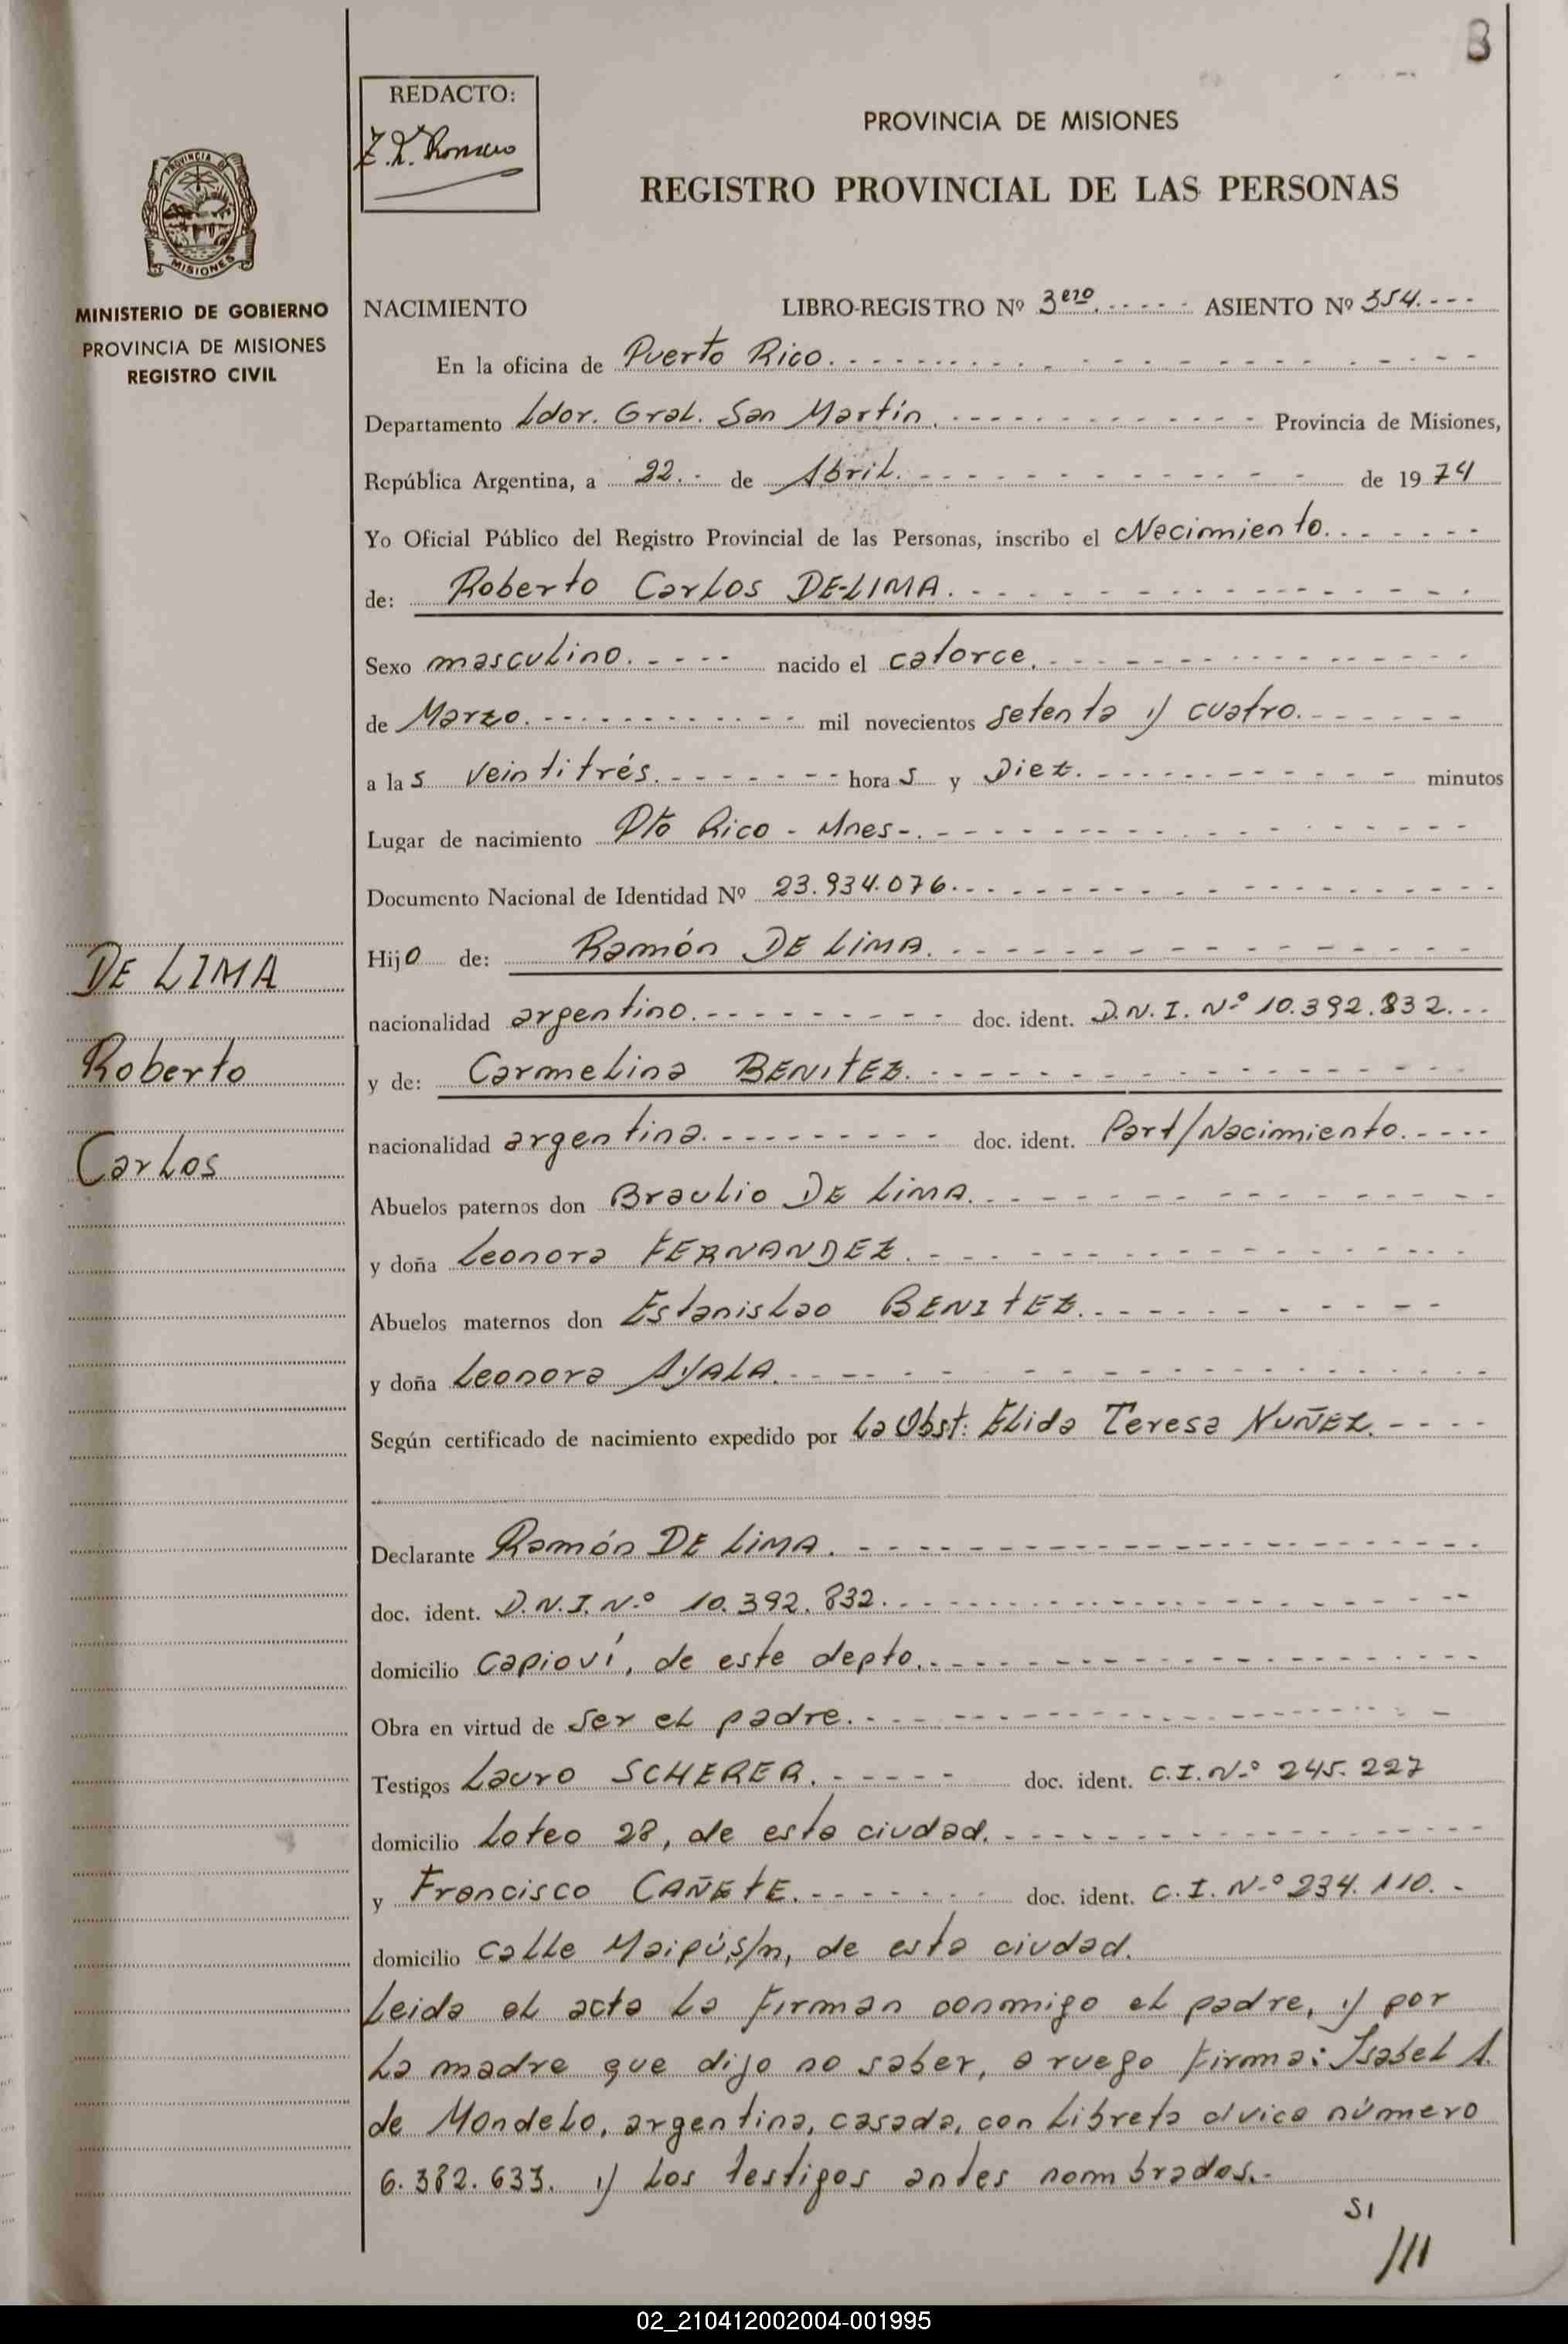 3
REDACTO:
PROVINCIA DE MISIONES
REGISTRO PROVINCIAL DE LAS PERSONAS
PROVINCIA DE
MISIONES
MINISTERIO DE GOBIERNO
PROVINCIA DE MISIONES
REGISTRO CIVIL
NACIMIENTO LIBRO-REGISTRO Nº 3ero. ASIENTO Nº 354.
En la oficina de Puerto Rico.
Departamento Ldor. Gral. San Martín. Provincia de Misiones,
República Argentina, a 22. de Abril. de 1974
Yo Oficial Público del Registro Provincial de las Personas, inscribo el Nacimiento.
de: Roberto Carlos DE-LIMA.
Sexo masculino. nacido el catorce.
de Marzo. mil novecientos setenta y cuatro.
a las veintitrés. horas y Diez. minutos
Lugar de nacimiento Pto Rico - Mnes-.
Documento Nacional de Identidad Nº 23.934.076.
Hijo de: Ramón DE LIMA.
DE LIMA
nacionalidad argentino. doc. ident. D.N.I. Nº 10.392.832.
Roberto
y de: Carmelina BENITEZ.
nacionalidad argentina. doc. ident. Part/Nacimiento.
Carlos
Abuelos paternos don Braulio DE LIMA.
y doña Leonora FERNANDEZ.
Abuelos maternos don Estanislao BENITEZ.
y doña Leonora AYALA.
Según certificado de nacimiento expedido por La Obst: Elida Teresa NUÑEZ.
Declarante Ramón DE LIMA.
doc. ident. D.N.I. Nº 10.392.832.
domicilio Capioví, de este depto.
Obra en virtud de ser el padre.
Testigos Lauro SCHERER. doc. ident. C.I. Nº 245.227
domicilio Loteo 28, de esta ciudad.
y Francisco CAÑETE. doc. ident. C.I. Nº 234.110.
domicilio calle Maipú, s/n, de esta ciudad.
Leida el acta la firman conmigo el padre, y por
la madre que dijo no saber, a ruego firma: Isabel A.
de Mondelo, argentina, casada, con libreta cívica número
6.382.633. y los testigos antes nombrados.-
SI
///
02_210412002004-001995